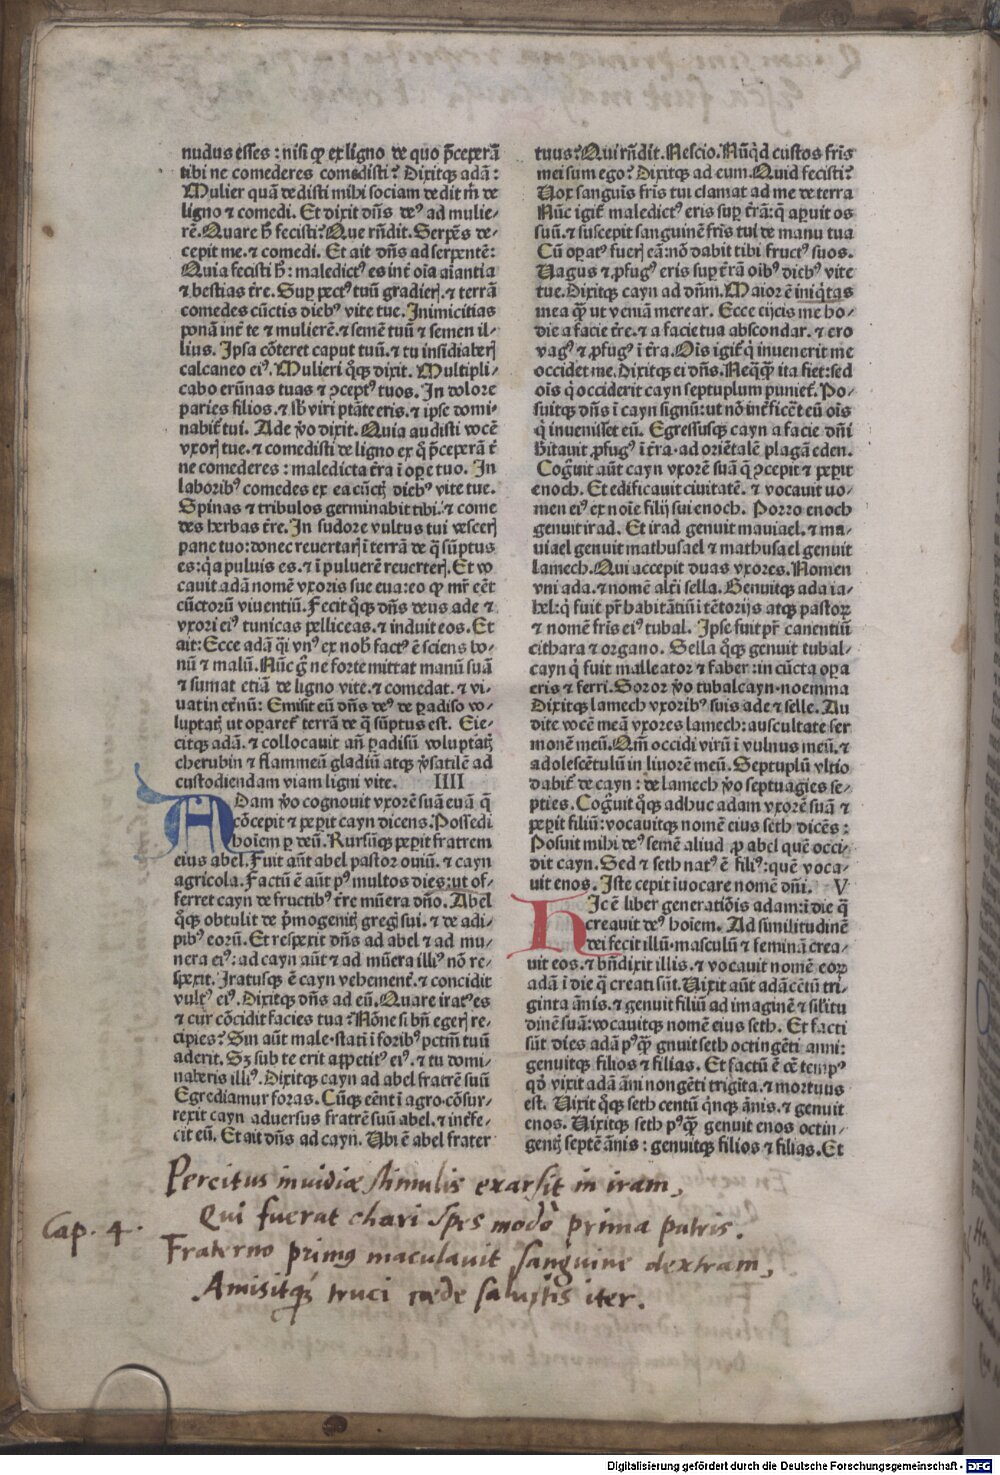 nudus esses : nisi ꝙ ex ligno de quo p̄ceperā
tibi ne comederes comedisti? Dixitqꝫ adā :
Mulier quā dedisti mihi sociam dedit m̄ de
ligno ⁊ comedi. Et dixit dn̄s deꝰ ad mulie-
rē. Quare h̄ fecisti? Que rn̄dit. Serpēs de-
cepit me. ⁊ comedi. Et ait dn̄s ad serpentē :
Quia fecisti h̄ : maledictꝰ es int̄ oīa aīantia
⁊ bestias t̄re. Suꝑ pectꝰ tuū gradierꝭ. ⁊ terrā
comedes cūctis diebꝰ vite tue. Inimicitias
ponā int̄ te ⁊ mulierē. ⁊ semē tuū ⁊ semen il-
lius. Ipsa cōteret caput tuū. ⁊ tu insidiaberꝭ
calcaneo eiꝰ. Mulieri q̄qꝫ dixit. Multipli-
cabo erūnas tuas ⁊ ꝯceptꝰ tuos. In dolore
paries filios. ⁊ sb̄ viri ptāte eris. ⁊ ipse domi-
nabit̄ tui. Ade v̄o dixit. Quia audisti vocē
vxorꝭ tue. ⁊ comedisti de ligno ex q̄ p̄ceperā t̄
ne comederes : maledicta t̄ra ī oꝑe tuo. In
laboribꝰ comedes ex ea cūctꝭ diebꝰ vite tue.
Spinas ⁊ tribulos germinabit tibi. ⁊ come
des herbas t̄re. In sudore vultus tui vescerꝭ
pane tuo: donec revertarꝭ ī terrā de q̄ sūptus
es: q̄a puluis es. ⁊ ī puluerē reuerterꝭ. Et vo
cauit adā nomē vxoris sue eua: eo ꝙ mr̄ eēt
cūctorū viuentiū. Fecit q̄qꝫ dn̄s deus ade ⁊
vxori eiꝰ tunicas pelliceas. ⁊ induit eos. Et
ait: Ecce adā q̄i vnꝰ ex nob̄ factꝰ ē sciens bo-
nū ⁊ malū. Nūc ḡ ne forte mittat manū suā
⁊ sumat etiā de ligno vite. ⁊ comedat. ⁊ vi-
uat in et̄nū: Emisit eū dn̄s deꝰ de ꝑadiso vo-
luptatꝭ ut oꝑaret̄ terrā de q̄ sūptus est. Eie-
citqꝫ adā. ⁊ collocauit an̄ ꝑadisū voluptatꝭ
cherubin ⁊ flammeū gladiū atqꝫ v̄satilē ad
custodiendam viam ligni vite. IIII
ADam v̄o cognouit vxorē suā euā q̄
cōcepit ⁊ peꝑit cayn dicens. Possedi
hoīem ꝑ deū. Rursūqꝫ peꝑit fratrem
eius abel. Fuit aūt abel pastor ouiū. ⁊ cayn
agricola. Factū ē aūt pꝰ multos dies: ut of-
ferret cayn de fructibꝰ t̄re mūera dn̄o. Abel
q̄qꝫ obtulit de p̄mogenitꝭ gregꝭ sui. ⁊ de adi-
pibꝰ eorū. Et respexit dn̄s ad abel ⁊ ad mu-
nera eiꝰ: ad cayn aūt ⁊ ad mūera illiꝰ nō re-
spexit. Iratusqꝫ ē cayn vehement̄. ⁊ concidit
vultꝰ eiꝰ. Dixitqꝫ dn̄s ad eū. Quare iratꝰ es
⁊ cur cōcidit facies tua? Nōne si bn̄ egerꝭ re-
cipies? Sin aūt male. stati ī foribꝰ pctm̄ tuū
aderit. Sꝫ sub te erit appetitꝰ eiꝰ. ⁊ tu domi-
naberis illiꝰ. Dixitqꝫ cayn ad abel fratrē suū
Egrediamur foras. Cūqꝫ eēnt ī agro. cōsur-
rexit cayn aduersus fratrē suū abel. ⁊ int̄fe-
cit eū. Et ait dn̄s ad cayn. Vbi ē abel frater
tuus? Qui rn̄dit. Nescio. Nūq̄d custos fr̄is
mei sum ego? Dixitqꝫ ad eum. Quid fecisti?
Vox sanguis fr̄is tui clamat ad me de terra
Nūc igit̄ maledictꝰ eris suꝑ t̄rā: q̄ aꝑuit os
suū. ⁊ suscepit sanguinē fr̄is tui de manu tua
Cū oꝑatꝰ fuerꝭ eā: nō dabit tibi fructꝰ suos.
Vagus ⁊ ꝓfugꝰ eris suꝑ t̄rā oībꝰ diebꝰ vite
tue. Dixitqꝫ cayn ad dn̄m. Maior ē iniq̄tas
mea q̄ꝫ ut veniā merear. Ecce eijcis me ho-
die a facie t̄re. ⁊ a facie tua abscondar. ⁊ ero
vagꝰ ⁊ ꝓfugꝰ ī t̄ra. Oīs igit̄ q̄ inuenerit me
occidet me. Dixitqꝫ ei dn̄s. Neq̄qꝫ ita fiet: sed
oīs q̄ occiderit cayn septuplum puniet̄. Po-
suitqꝫ dn̄s ī cayn signū: ut nō int̄ficēt eū oīs
q̄ inuenisset eū. Egressusqꝫ cayn a facie dn̄i
h̄itauit ꝓfugꝰ ī t̄ra. ad oriētalē plagā eden.
Cogūit aūt cayn vxorē suā q̄ ꝯcepit ⁊ peꝑit
enoch. Et edificauit ciuitatē. ⁊ vocauit no-
men eiꝰ ex noīe filij sui enoch. Porro enoch
genuit irad. Et irad genuit mauiael. ⁊ ma-
uiael genuit mathusael ⁊ mathusael genuit
lamech. Qui accepit duas vxores. Nomen
vni ada. ⁊ nomē alt̄i sella. Genuitqꝫ ada ia-
bel: q̄ fuit pr̄ habitātiū ī tētorijs atqꝫ pastorꝝ
⁊ nomē fr̄is eiꝰ tubal. Ipse fuit pr̄ canentiū
cithara ⁊ organo. Sella q̄qꝫ genuit tubal-
cayn q̄ fuit malleator ⁊ faber: in cūcta oꝑa
eris ⁊ ferri. Soror v̄o tubalcayn. noemma
Dixitqꝫ lamech vxoribꝰ suis ade ⁊ selle. Au
dite vocē meā vxores lamech: auscultate ser
monē meū. Qm̄ occidi virū ī vulnus meū. ⁊
adolescētulū in liuorē meū. Septuplū vltio
dabit̄ de cayn : de lamech v̄o septuagies se-
pties. Cogūit q̄qꝫ adhuc adam vxorē suā ⁊
peꝑit filiū: vocauitqꝫ nomē eius seth dicēs :
Posuit mihi deꝰ semē aliud ꝓ abel quē occi-
dit cayn. Sed ⁊ seth natꝰ ē filiꝰ: quē voca-
uit enos. Iste cepit īuocare nomē dn̄i. V
HIc ē liber generatiōis adam: ī die q̄
creauit deꝰ hoīem. Ad similitudinē
dei fecit illū. masculū ⁊ feminā crea-
uit eos. ⁊ bn̄dixit illis. ⁊ vocauit nomē eoꝝ
adā ī die q̄ creati sūt. Vixit aūt adā cētū tri-
ginta ānis. ⁊ genuit filiū ad imaginē ⁊ sil̄itu
dinē suā: vocauitqꝫ nomē eius seth. Et facti
sūt dies adā pꝰq̄ꝫ gnuit seth octingēti anni:
genuitqꝫ filios ⁊ filias. Et factū ē oē tempꝰ
qd̄ vixit adā āni nongēti trīgīta. ⁊ mortuus
est. Vixit q̄qꝫ seth centū q̄nqꝫ ānis. ⁊ genuit
enos. Vixitqꝫ seth pꝰq̄ꝫ genuit enos octin-
gentꝭ septē ānis : genuitqꝫ filios ⁊ filias. Et
Percitus invidiæ stimulis exarsit in iram,
Qui fuerat chari spes modò prima patris.
Cap. 4.
Fraterno primus maculavit sanguine dextram,
Amisitqꝫ truci cæde salutis iter.
Digitalisierung gefördert durch die Deutsche Forschungsgemeinschaft - DFG